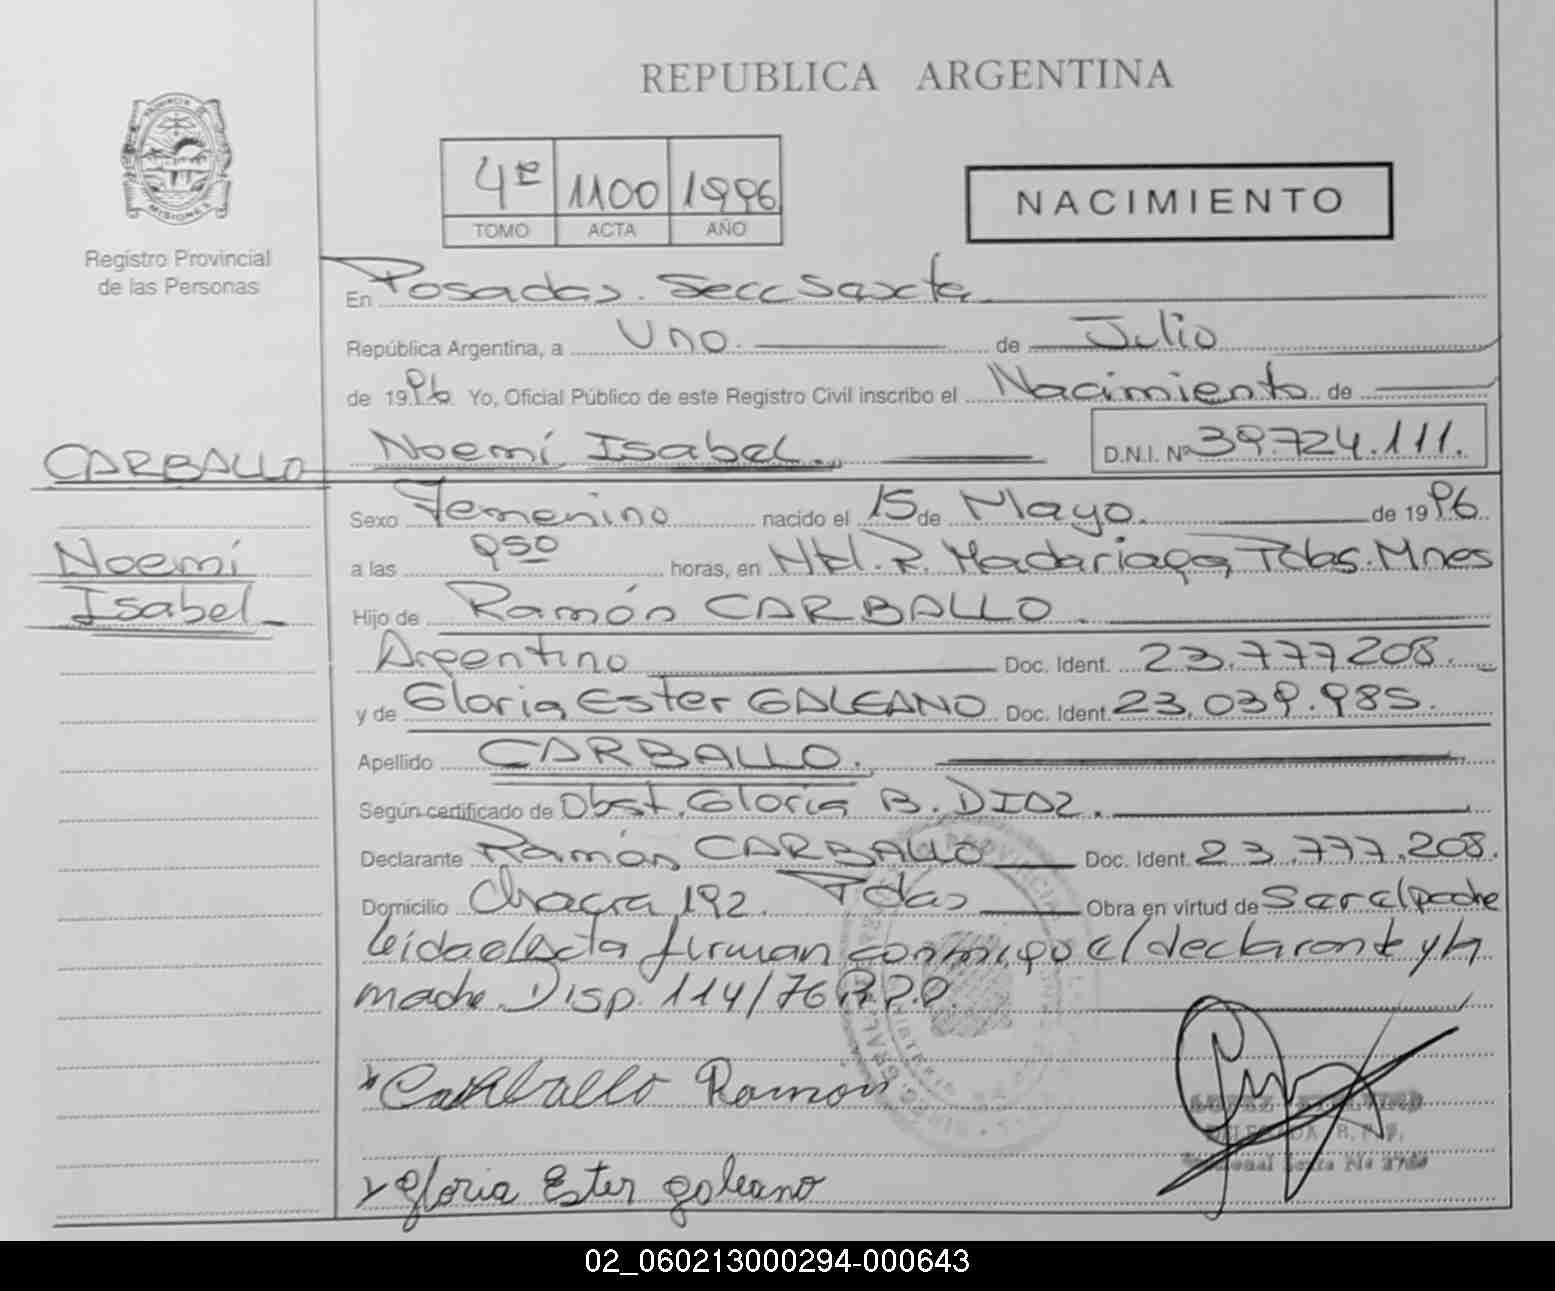 REPUBLICA ARGENTINA
PROVINCIA DE
MISIONES
Registro Provincial
de las Personas
4º 1100 1996
TOMO ACTA AÑO
NACIMIENTO
En Posadas. Secc Sexta
República Argentina, a Uno. de Julio
de 1996 Yo, Oficial Público de este Registro Civil inscribo el Nacimiento de
CARBALLO Noemí Isabel. D.N.I. Nº 39.724.111.
Sexo Femenino nacido el 15 de Mayo. de 1996
Noemí
Isabel
a las 950 horas, en Htl. R. Madariaga, Pdas. Mnes
Hijo de Ramón CARBALLO.
Argentino Doc. Ident. 23.777.208.
y de Gloria Ester GALEANO Doc. Ident. 23.039.985.
Apellido CARBALLO.
Según certificado de Obst. Gloria B. DIAZ.
Declarante Ramón CARBALLO Doc. Ident. 23.777.208.
Domicilio Chacra 192. Pdas Obra en virtud de Ser el padre
leida el Acta firman conmigo el declarante y la
madre. Disp. 114/76 R.P.P.
Carballo Ramon
Gloria Ester galeano
02_060213000294-000643